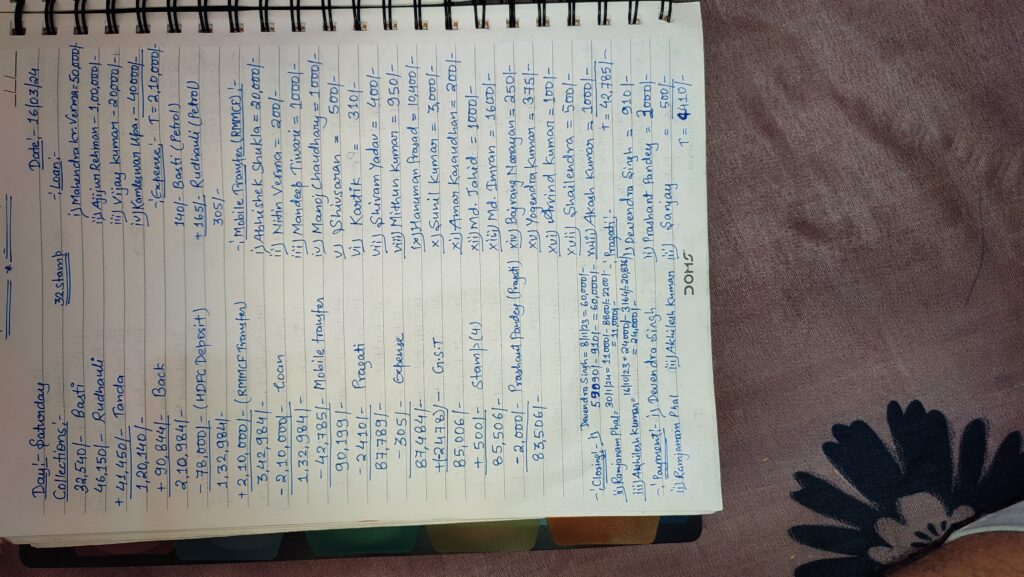 Day:- Saturday
Date:- 16/03/24
Collections:-
32 Stamp
32,540/- Basti
46,150/- Rudhauli
+ 41,450/- Tanda
1,20,140/-
+ 90,844/- Back
2,10,984/-
- 78,000/- (HDFC Deposit)
1,32,984/-
+ 2,10,000/- (RMMCF Transfer)
3,42,984/-
- 2,10,000/- Loan
1,32,984/-
- 42,785/- Mobile transfer
90,199/-
- 2410/- Pragati
87,789/-
- 305/- Expense
87,484/-
(2478)/- G.S.T
85,006/-
+ 500/- Stamp (4)
85,506/-
- 2,000/- Prashant Pandey (Pragati)
83,506/-
:- Loan:-
i) Mahendra kr. Verma = 50,000/-
ii) Ajijur Rehman - 100,000/-
iii) Vijay kumar - 20,000/-
iv) Kamleswar Upa. - 40000/-
:- Expense:- T = 2,10,000/-
140/- Basti (Petrol)
+ 165/- Rudhauli (Petrol)
305/-
:- Mobile Transfer (RMMCF):-
i) Abhishek Shukla = 20,000/-
ii) Nitin Verma = 200/-
iii) Mandeep Tiwari = 1000/-
iv) Manoj Chaudhary = 1000/-
v) Shivcaran = 500/-
vi) Kartik = 310/-
vii) Shivam Yadav = 400/-
viii) Mithun Kumar = 950/-
ix) Hanuman Prasad = 10,400/-
x) Sunil Kumar = 3,000/-
xi) Amar Kasaudhan = 200/-
xii) Md. Jahid = 1000/-
xiii) Md. Imran = 1600/-
xiv) Bajrang Narayan = 250/-
xv) Yogendra Kumar = 375/-
xvi) Arvind Kumar = 100/-
xvii) Shailendra = 500/-
xviii) Akash Kumar = 1000/-
T = 42,785/-
:- Closing:- i) Devendra Singh = 8/1/23 = 60,000/-
59090/- 910/- = 60,000/-
ii) Ramjanam Phal = 30/1/24 = 11000/- 8800/- 2200/-
= 11,000/-
iii) Akhilesh Kumar = 16/10/23 = 24000/- 3164/- 20,836/-
= 24,000/-
:- Payment:- i) Devendra Singh
ii) Ramjanam Phal iii) Akhilesh Kumar
:- Pragati:-
i) Devendra Singh = 910/-
ii) Prashant Pandey = 3000/-
iii) Sanjay = 500/-
T = 4410/-
DOMS